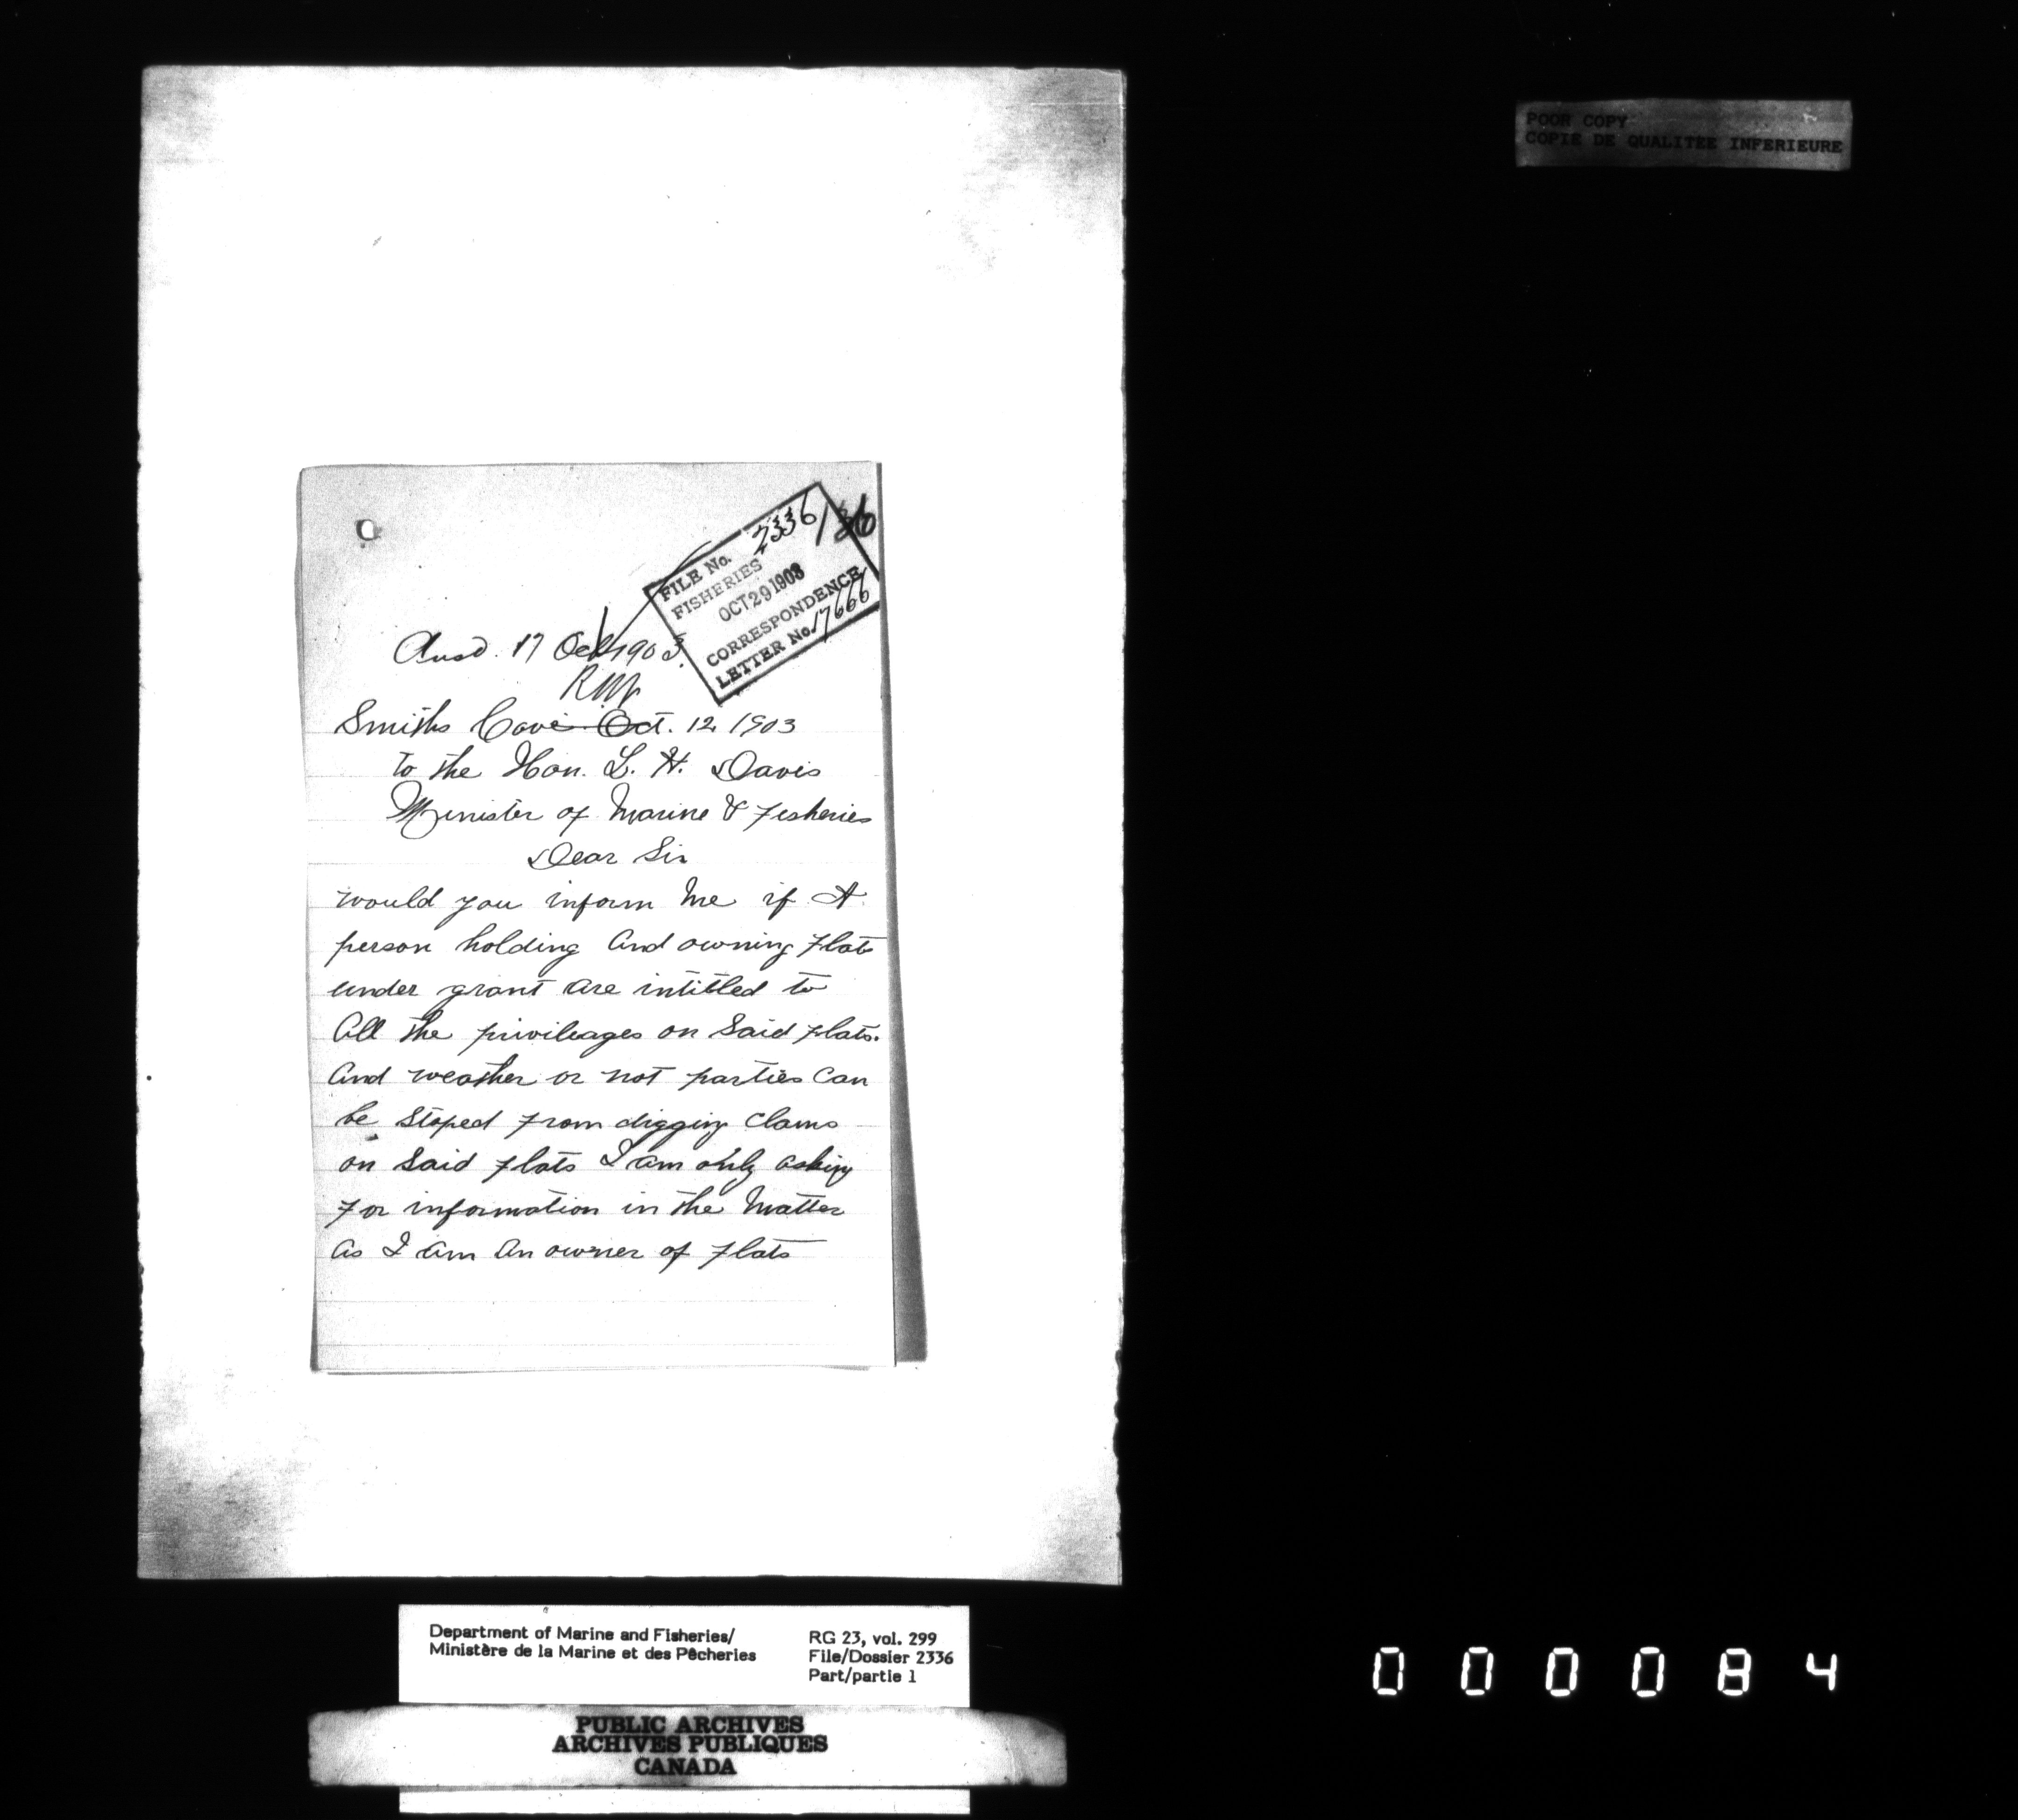 POOR COPY
COPIE DE QUALITEE INFERIEURE
FILE No. 2336/36
FISHERIES
OCT 29 1903
CORRESPONDENCE
LETTER No. 17666
Ansd. 17 Oct 1903.
Smiths Cove Oct. 12 1903
to the Hon. L. H. Davis
Minister of Marine & Fisheries
Dear Sir
would you inform Me if A
person holding And owning flats
under grant are intitled to
All the privileages on Said flats.
And weather or not parties Can
be Stoped from digging Clams
on Said flats I am only asking
for information in the Matter
As I am An owner of flats
Department of Marine and Fisheries/
Ministère de la Marine et des Pêcheries
RG 23, vol. 299
File/Dossier 2336
Part/partie 1
PUBLIC ARCHIVES
ARCHIVES PUBLIQUES
CANADA
000084